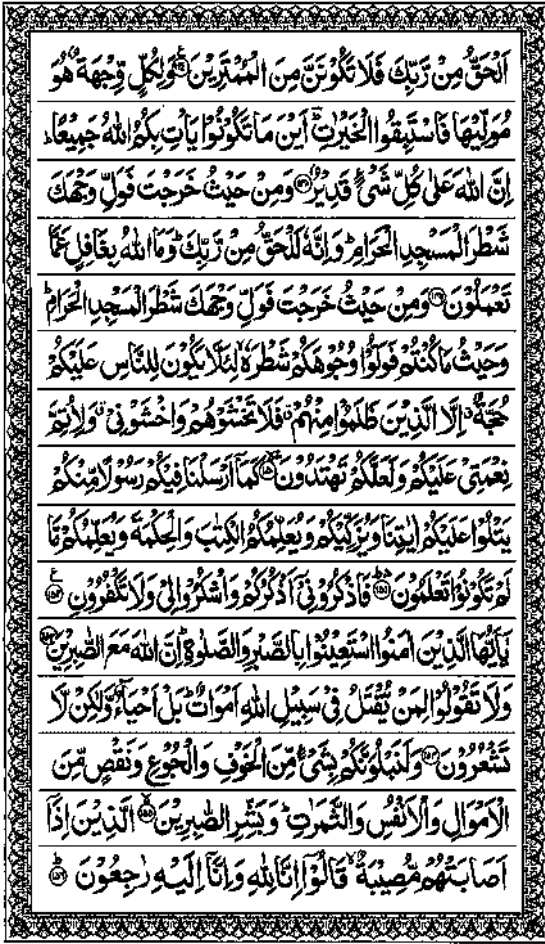 اَلْحَقُّ مِنْ رَّبِّكَ فَلَا تَكُوْنَنَّ مِنَ الْمُمْتَرِيْنَ ﴿۱۴۷﴾ وَلِكُلٍّ وِّجْهَةٌ هُوَ
مُوَلِّيْهَا فَاسْتَبِقُوا الْخَيْرٰتِ ؕ اَيْنَ مَا تَكُوْنُوْا يَاْتِ بِكُمُ اللّٰهُ جَمِيْعًا ؕ
اِنَّ اللّٰهَ عَلٰى كُلِّ شَىْءٍ قَدِيْرٌ ﴿۱۴۸﴾ وَمِنْ حَيْثُ خَرَجْتَ فَوَلِّ وَجْهَكَ
شَطْرَ الْمَسْجِدِ الْحَرَامِ ؕ وَاِنَّهٗ لَلْحَقُّ مِنْ رَّبِّكَ ؕ وَمَا اللّٰهُ بِغَافِلٍ عَمَّا
تَعْمَلُوْنَ ﴿۱۴۹﴾ وَمِنْ حَيْثُ خَرَجْتَ فَوَلِّ وَجْهَكَ شَطْرَ الْمَسْجِدِ الْحَرَامِ ؕ
وَحَيْثُ مَا كُنْتُمْ فَوَلُّوْا وُجُوْهَكُمْ شَطْرَهٗ ۙ لِئَلَّا يَكُوْنَ لِلنَّاسِ عَلَيْكُمْ
حُجَّةٌ ۙ اِلَّا الَّذِيْنَ ظَلَمُوْا مِنْهُمْ ۗ فَلَا تَخْشَوْهُمْ وَاخْشَوْنِىْ ۗ وَلِاُتِمَّ
نِعْمَتِىْ عَلَيْكُمْ وَلَعَلَّكُمْ تَهْتَدُوْنَ ﴿۱۵۰﴾ كَمَآ اَرْسَلْنَا فِيْكُمْ رَسُوْلًا مِّنْكُمْ
يَتْلُوْا عَلَيْكُمْ اٰيٰتِنَا وَيُزَكِّيْكُمْ وَيُعَلِّمُكُمُ الْكِتٰبَ وَالْحِكْمَةَ وَيُعَلِّمُكُمْ مَّا
لَمْ تَكُوْنُوْا تَعْلَمُوْنَ ﴿۱۵۱﴾ فَاذْكُرُوْنِىْٓ اَذْكُرْكُمْ وَاشْكُرُوْا لِىْ وَلَا تَكْفُرُوْنِ ﴿۱۵۲﴾
يٰٓاَيُّهَا الَّذِيْنَ اٰمَنُوا اسْتَعِيْنُوْا بِالصَّبْرِ وَالصَّلٰوةِ ؕ اِنَّ اللّٰهَ مَعَ الصّٰبِرِيْنَ ﴿۱۵۳﴾
وَلَا تَقُوْلُوْا لِمَنْ يُّقْتَلُ فِىْ سَبِيْلِ اللّٰهِ اَمْوَاتٌ ؕ بَلْ اَحْيَآءٌ وَّلٰكِنْ لَّا
تَشْعُرُوْنَ ﴿۱۵۴﴾ وَلَنَبْلُوَنَّكُمْ بِشَىْءٍ مِّنَ الْخَوْفِ وَالْجُوْعِ وَنَقْصٍ مِّنَ
الْاَمْوَالِ وَالْاَنْفُسِ وَالثَّمَرٰتِ ؕ وَبَشِّرِ الصّٰبِرِيْنَ ﴿۱۵۵﴾ الَّذِيْنَ اِذَآ
اَصَابَتْهُمْ مُّصِيْبَةٌ ۙ قَالُوْٓا اِنَّا لِلّٰهِ وَاِنَّآ اِلَيْهِ رٰجِعُوْنَ ﴿۱۵۶﴾